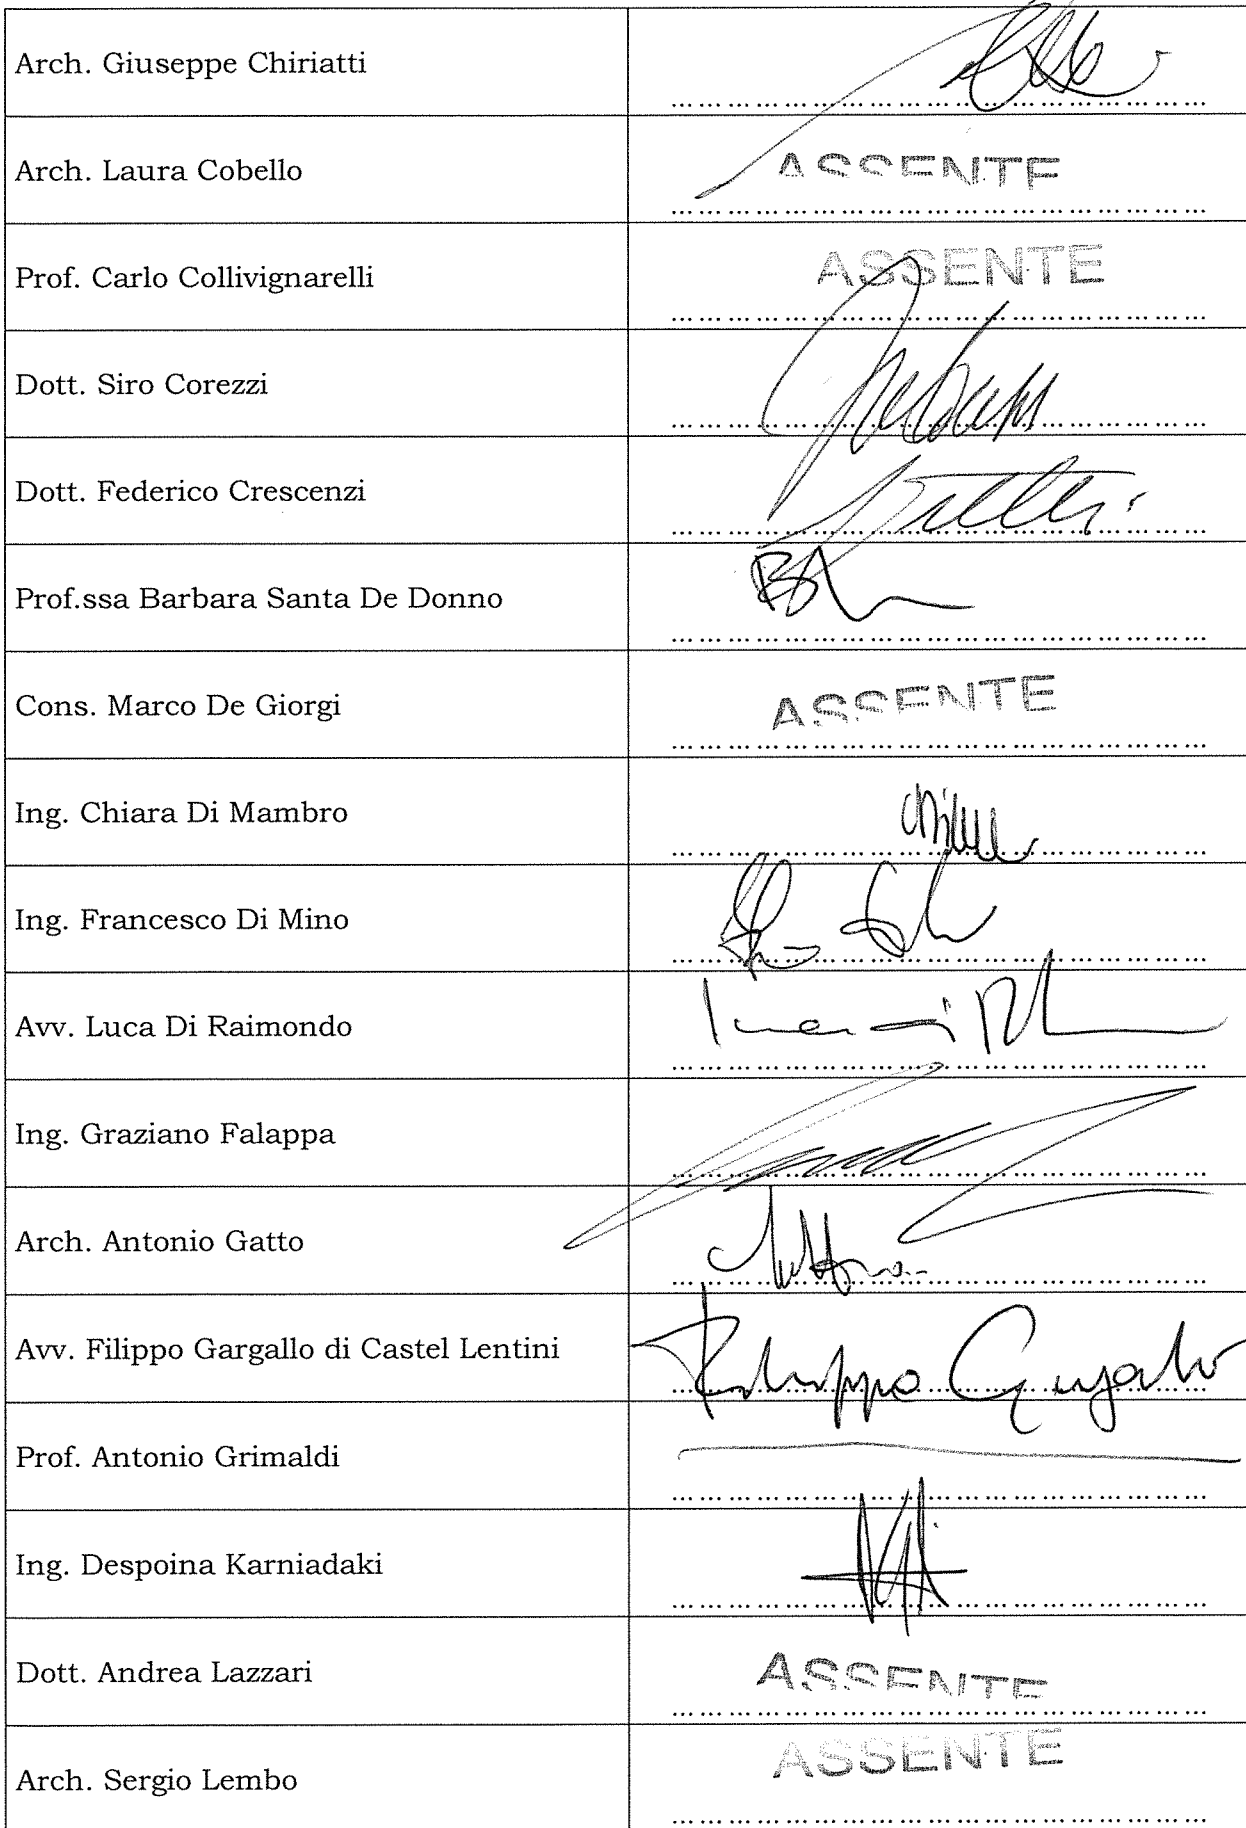 Arch. Giuseppe Chiriatti
Arch. Laura Cobello ASSENTE
Prof. Carlo Collivignarelli ASSENTE
Dott. Siro Corezzi
Dott. Federico Crescenzi
Prof.ssa Barbara Santa De Donno
Cons. Marco De Giorgi ASSENTE
Ing. Chiara Di Mambro
Ing. Francesco Di Mino
Avv. Luca Di Raimondo
Ing. Graziano Falappa
Arch. Antonio Gatto
Avv. Filippo Gargallo di Castel Lentini Filippo Gargallo
Prof. Antonio Grimaldi
Ing. Despoina Karniadaki
Dott. Andrea Lazzari ASSENTE
Arch. Sergio Lembo ASSENTE